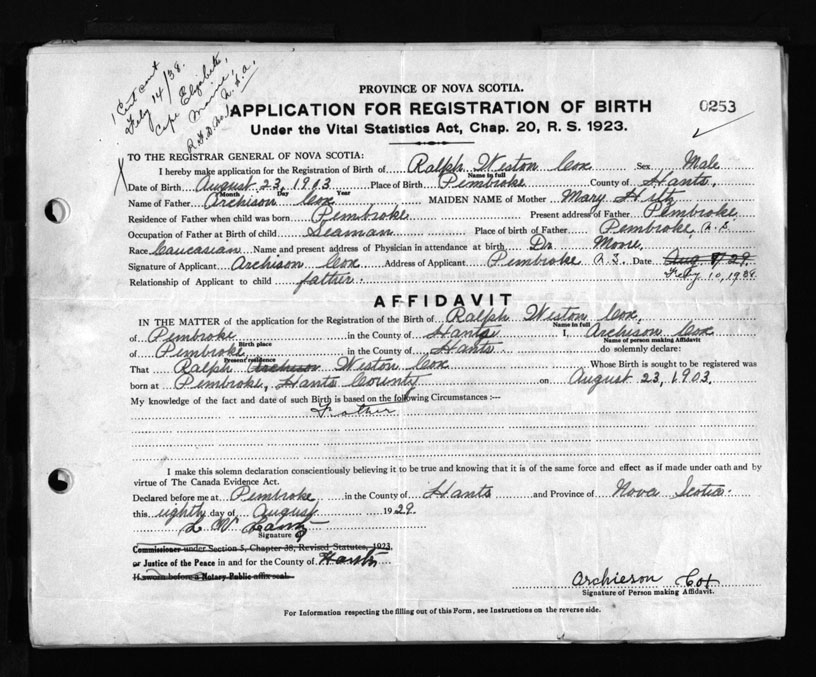 1 Cert cont
Feby 14/38.
Cape Elizabeth,
Maine,
U.S.A.
R.F.D. No 1
PROVINCE OF NOVA SCOTIA.
APPLICATION FOR REGISTRATION OF BIRTH
0253
Under the Vital Statistics Act, Chap. 20, R. S. 1923.
TO THE REGISTRAR GENERAL OF NOVA SCOTIA:
I hereby make application for the Registration of Birth of Ralph Weston Cox Sex Male
Name in full
Date of Birth August 23, 1903 Place of Birth Pembroke County of Hants.
Month Day Year
Name of Father Archison Cox MAIDEN NAME of Mother Mary Hiltz
Residence of Father when child was born Pembroke Present address of Father Pembroke,
Occupation of Father at Birth of child Seaman Place of birth of Father Pembroke, N.S.
Race Caucasian Name and present address of Physician in attendance at birth Dr. Moore,
Signature of Applicant Archison Cox Address of Applicant Pembroke N.S. Date Aug 8/29.
Feby 10, 1938.
Relationship of Applicant to child father.
AFFIDAVIT
IN THE MATTER of the application for the Registration of the Birth of Ralph Weston Cox,
Name in full
of Pembroke in the County of Hants I, Archison Cox
Birth place Name of person making Affidavit
of Pembroke in the County of Hants do solemnly declare:
Present residence
That Ralph Archison Weston Cox Whose Birth is sought to be registered was
born at Pembroke, Hants County on August 23, 1903.
My knowledge of the fact and date of such Birth is based on the following Circumstances :—
Father
I make this solemn declaration conscientiously believing it to be true and knowing that it is of the same force and effect as if made under oath and by
virtue of The Canada Evidence Act.
Declared before me at Pembroke in the County of Hants and Province of Nova Scotia.
this eighth day of August 1929.
L W
Signature
Commissioner under Section 5, Chapter 38, Revised Statutes, 1923.
or Justice of the Peace in and for the County of Hants
If sworn before a Notary Public affix seal.
Archieson Cox
Signature of Person making Affidavit.
For Information respecting the filling out of this Form, see Instructions on the reverse side.